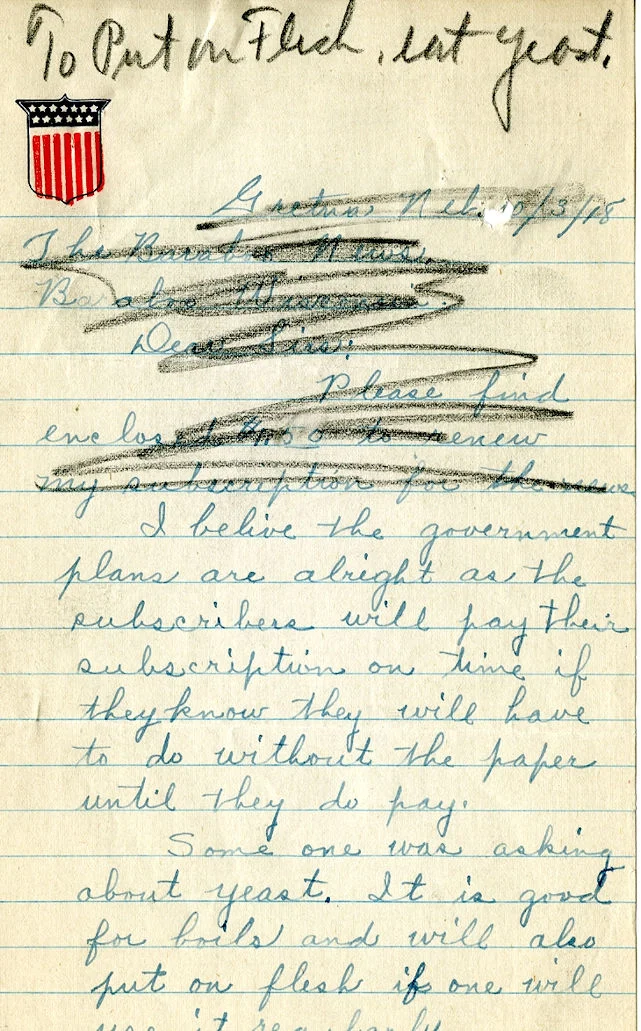 To Put on Flesh, eat yeast.
Gretna Neb. 10/3/18
The Baraboo News,
Baraboo Wisconsin.
Dear Sirs:
Please find
enclosed $1.50 to renew
my subscription for the news
I belive the government
plans are alright as the
subscribers will pay their
subscription on time if
they know they will have
to do without the paper
until they do pay.
Some one was asking
about yeast. It is good
for boils and will also
put on flesh if one will
use it regularly